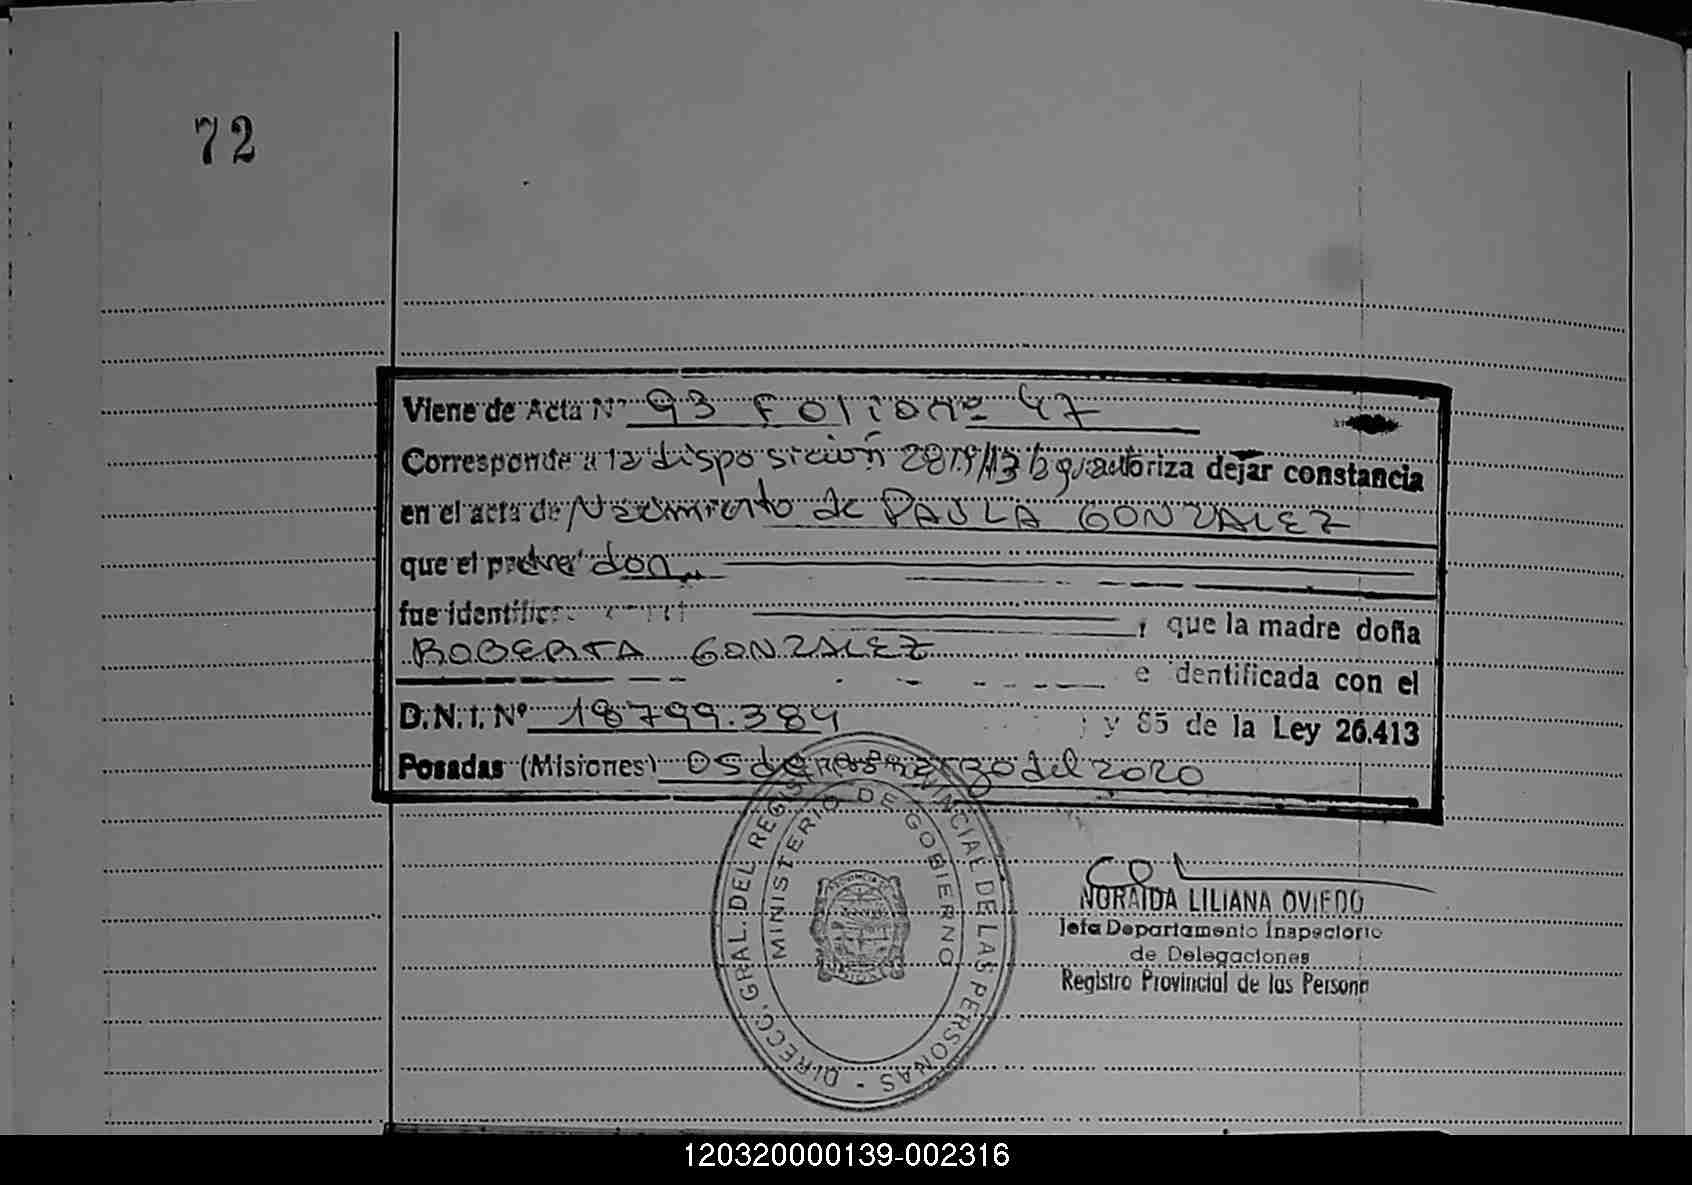 72
Viene de Acta Nº 93 Folio nº 47
Corresponde a la disposición autoriza dejar constancia
en el acta de Nacimiento de PAULA GONZALEZ
que el padre don
fue identific , que la madre doña
ROBERTA GONZALEZ
e dentificada con el
D.N.I. Nº 18799.384 y 85 de la Ley 26.413
Posadas (Misiones) 05 de marzo del 2020
DIRECC. GRAL. DEL REGISTRO PROVINCIAL DE LAS PERSONAS -
MINISTERIO DE GOBIERNO
NORAIDA LILIANA OVIEDO
Jefa Departamento Inspectorio
de Delegaciones
Registro Provincial de las Persona
120320000139-002316